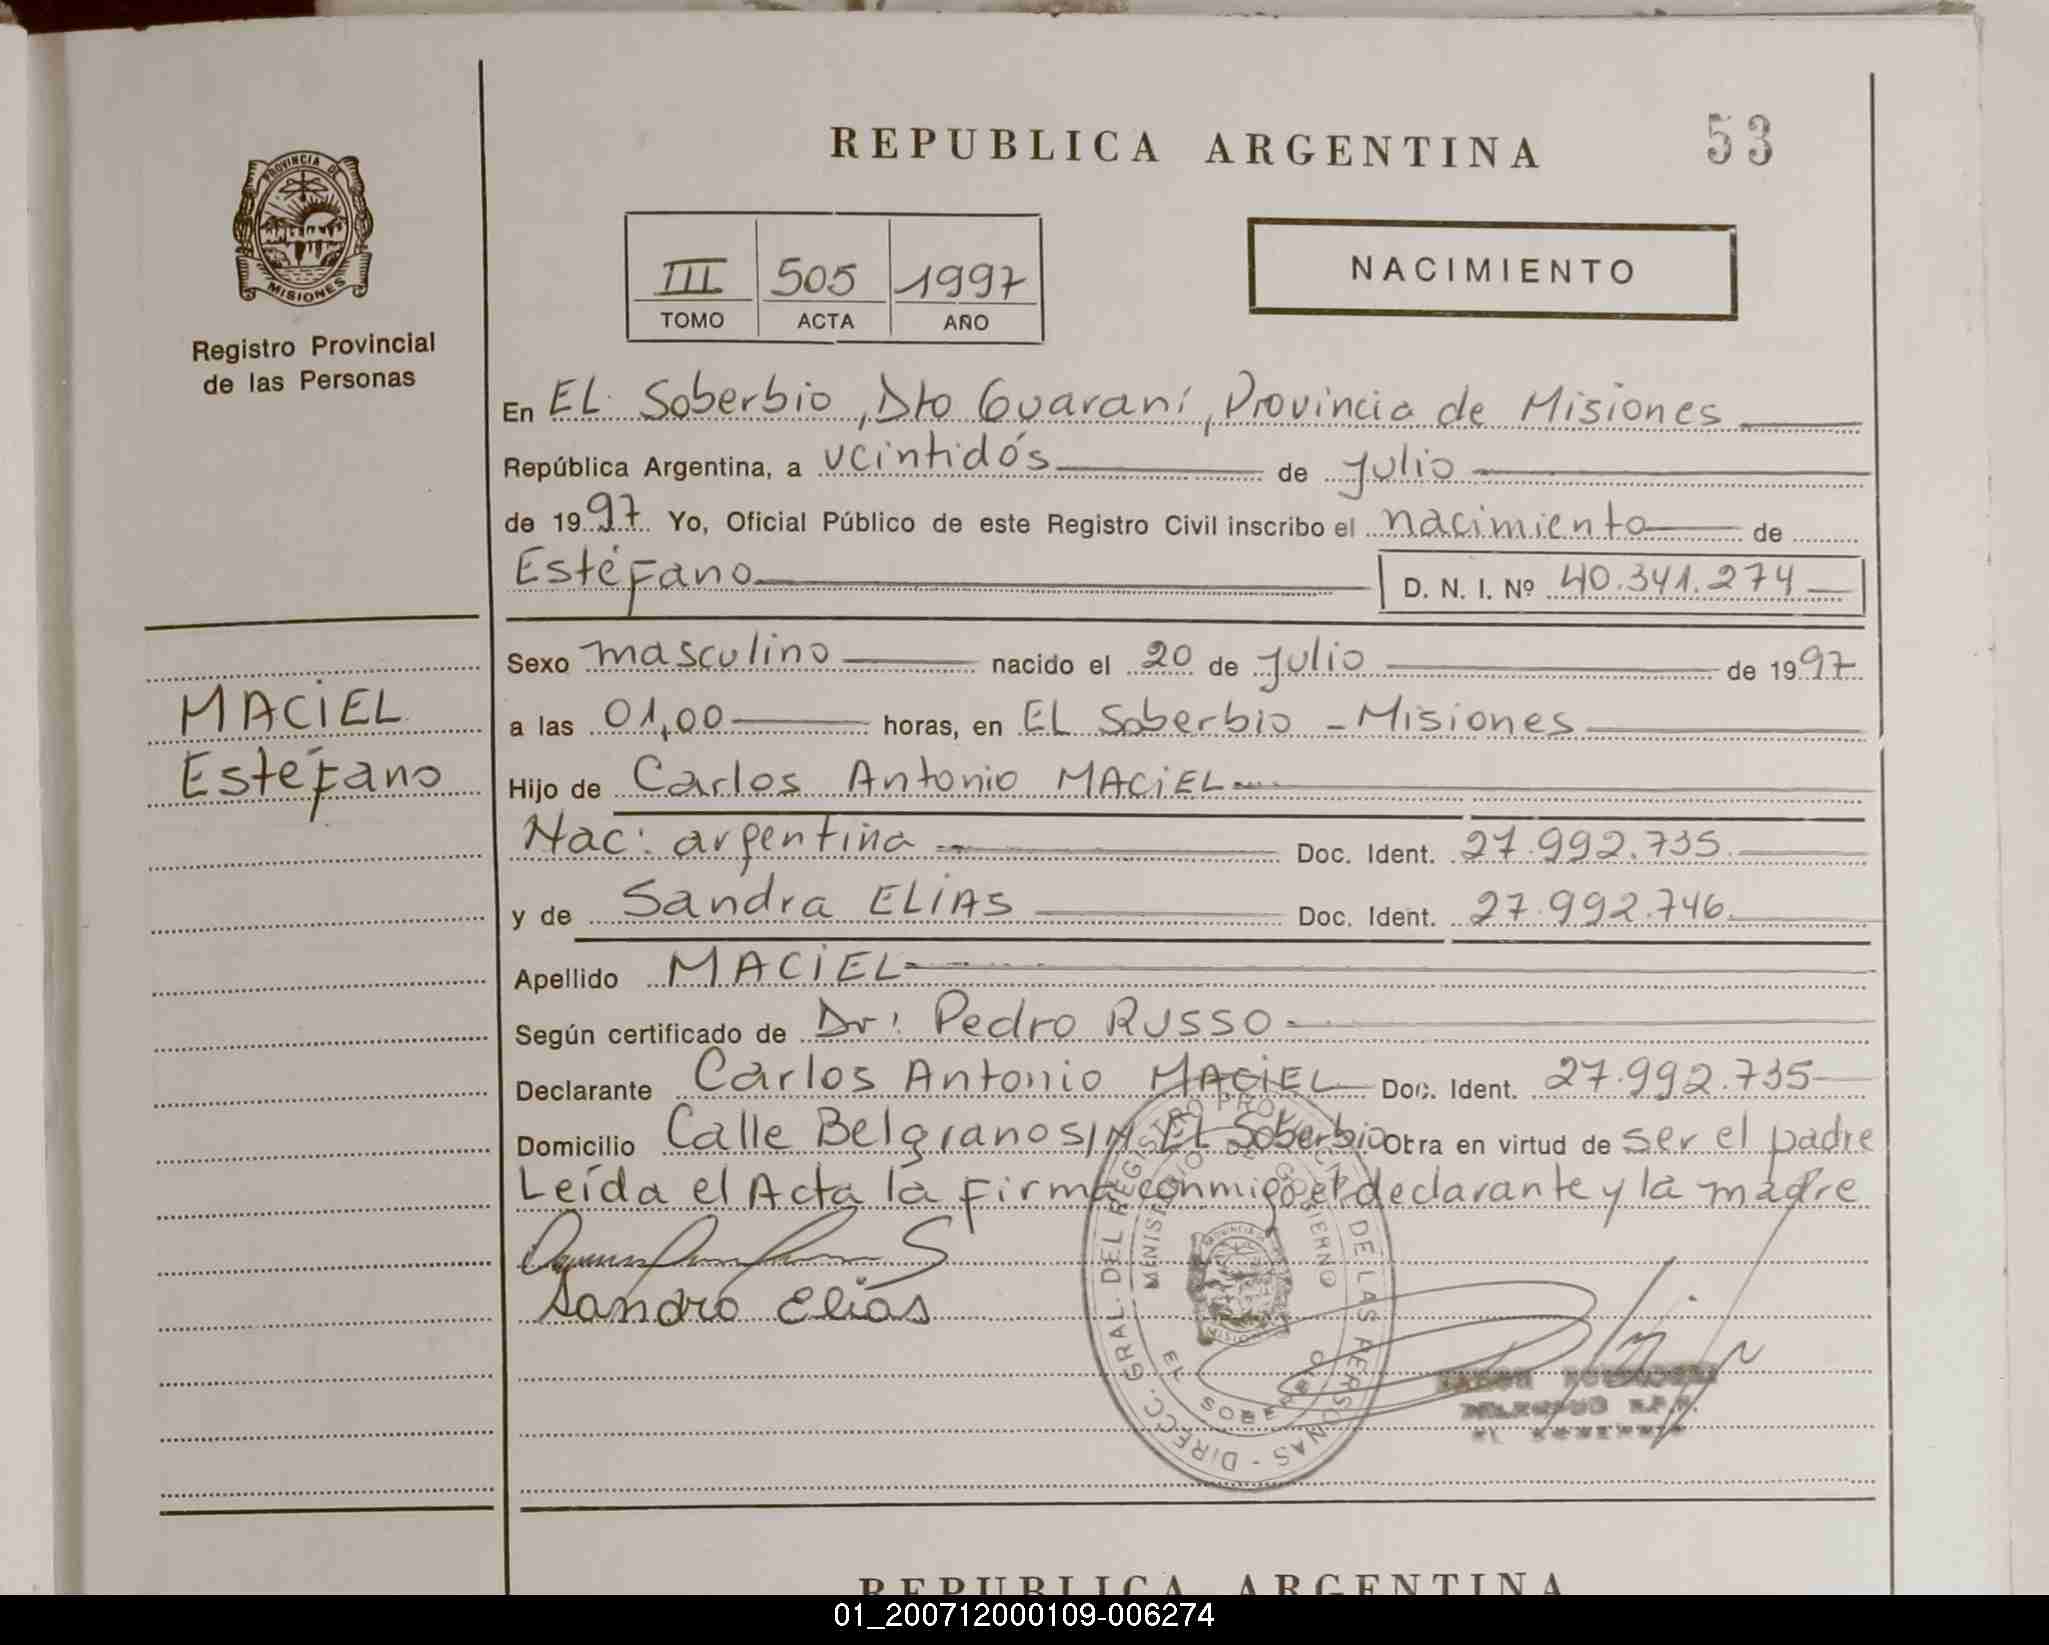 REPUBLICA ARGENTINA
53
PROVINCIA DE
MISIONES
Registro Provincial
de las Personas
III 505 1997
TOMO ACTA AÑO
NACIMIENTO
En EL Soberbio, Dto Guaraní, Provincia de Misiones
República Argentina, a veintidós de julio
de 1997 Yo, Oficial Público de este Registro Civil inscribo el nacimiento de
Estéfano D. N. I. Nº 40.341.274
Sexo masculino nacido el 20 de julio de 1997
MACIEL
a las 01,00 horas, en EL Soberbio - Misiones
Estéfano
Hijo de Carlos Antonio MACIEL
Nac: argentina Doc. Ident. 27.992.735
y de Sandra ELIAS Doc. Ident. 27.992.746
Apellido MACIEL
Según certificado de Dr: Pedro RUSSO
Declarante Carlos Antonio MACIEL Doc. Ident. 27.992.735
Domicilio Calle Belgrano S/N EL Soberbio Obra en virtud de ser el padre
Leída el Acta la firma conmigo el declarante y la madre
Sandra Elias
DIRECC. GRAL. DEL REGISTRO PROVINCIAL DE LAS PERSONAS
MINISTERIO DE GOBIERNO
EL SOBERBIO
MISIONES
REPUBLICA ARGENTINA
01_200712000109-006274